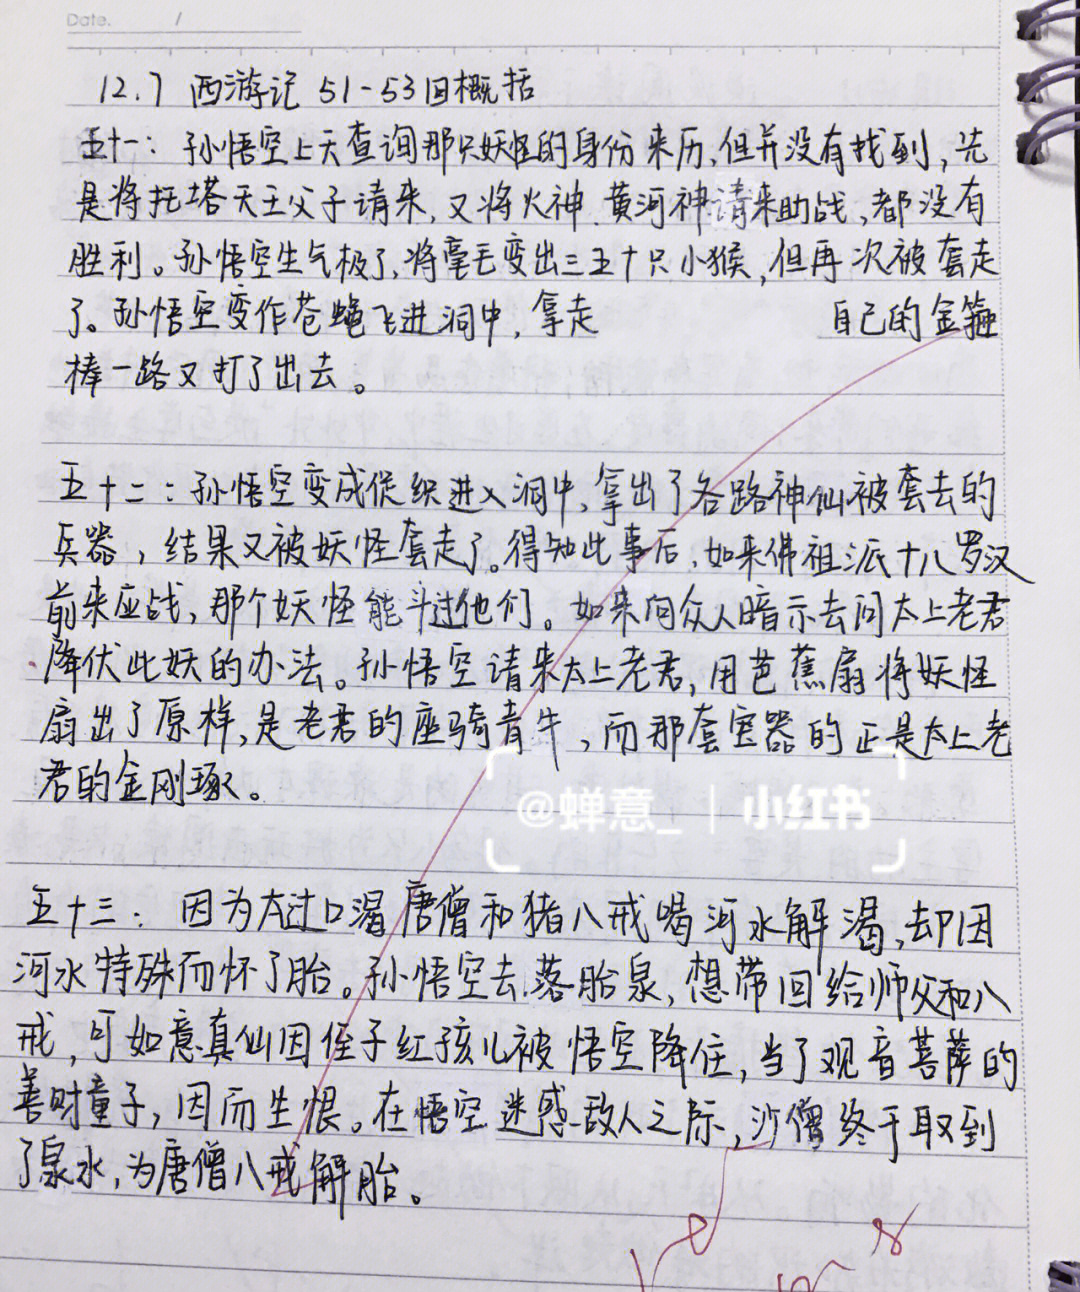 Date. /
12.7 西游记 51-53回概括
五十一：孙悟空上天查询那只妖怪的身份来历，但并没有找到，先
是将托塔天王父子请来，又将火神、黄河神请来助战，都没有
胜利。孙悟空生气极了，将毫毛变出三五十只小猴，但再次被套走
了。孙悟空变作苍蝇飞进洞中，拿走 自己的金箍
棒一路又打了出去。
五十二：孙悟空变成促织进入洞中，拿出了各路神仙被套去的
兵器，结果又被妖怪套走了。得知此事后，如来佛祖派十八罗汉
前来应战，那个妖怪能斗过他们。如来向众人暗示去问太上老君
降伏此妖的办法。孙悟空请来太上老君，用芭蕉扇将妖怪
扇出了原样，是老君的座骑青牛，而那套宝器的正是太上老
君的金刚琢。
@蝉意_ | 小红书
五十三：因为太过口渴唐僧和猪八戒喝河水解渴，却因
河水特殊而怀了胎。孙悟空去落胎泉，想带回给师父和八
戒，可如意真仙因侄子红孩儿被悟空降住，当了观音菩萨的
善财童子，因而生恨。在悟空迷惑敌人之际，沙僧终于取到
了泉水，为唐僧八戒解胎。